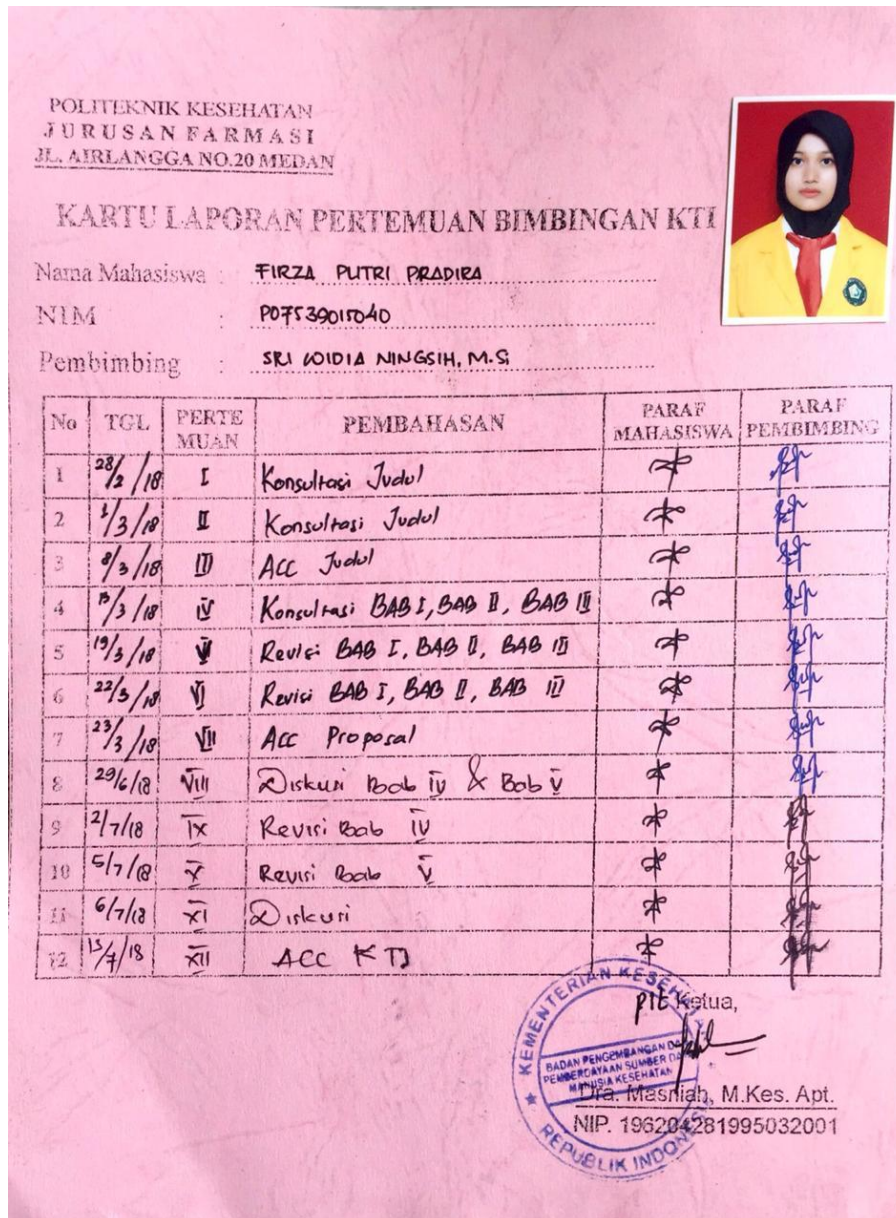 POLITEKNIK KESEHATAN
JURUSAN FARMASI
JL. AIRLANGGA NO.20 MEDAN
KARTU LAPORAN PERTEMUAN BIMBINGAN KTI
Nama Mahasiswa : FIRZA PUTRI PRADIRA
NIM : P07539015040
Pembimbing : SRI WIDIA NINGSIH, M.Si
No TGL PERTE MUAN PEMBAHASAN PARAF MAHASISWA PARAF PEMBIMBING
1 28/2/18 I Konsultasi Judul
2 1/3/18 II Konsultasi Judul
3 8/3/18 III ACC Judul
4 /3/18 IV Konsultasi BAB I, BAB II, BAB III
5 19/3/18 V Revisi BAB I, BAB II, BAB III
6 22/3/18 VI Revisi BAB I, BAB II, BAB III
7 23/3/18 VII Acc Proposal
8 29/6/18 VIII Diskusi Bab IV & Bab V
9 2/7/18 IX Revisi Bab IV
10 5/7/18 X Revisi Bab V
11 6/7/18 XI Diskusi
12 13/7/18 XII ACC KTI
Plt Ketua,
KEMENTERIAN KESEHA
BADAN PENGEMBANGAN DA
PEMBERDAYAAN SUMBER DA
MANUSIA KESEHATAN
REPUBLIK INDONESIA
Dra. Masniah, M.Kes. Apt.
NIP. 196204281995032001